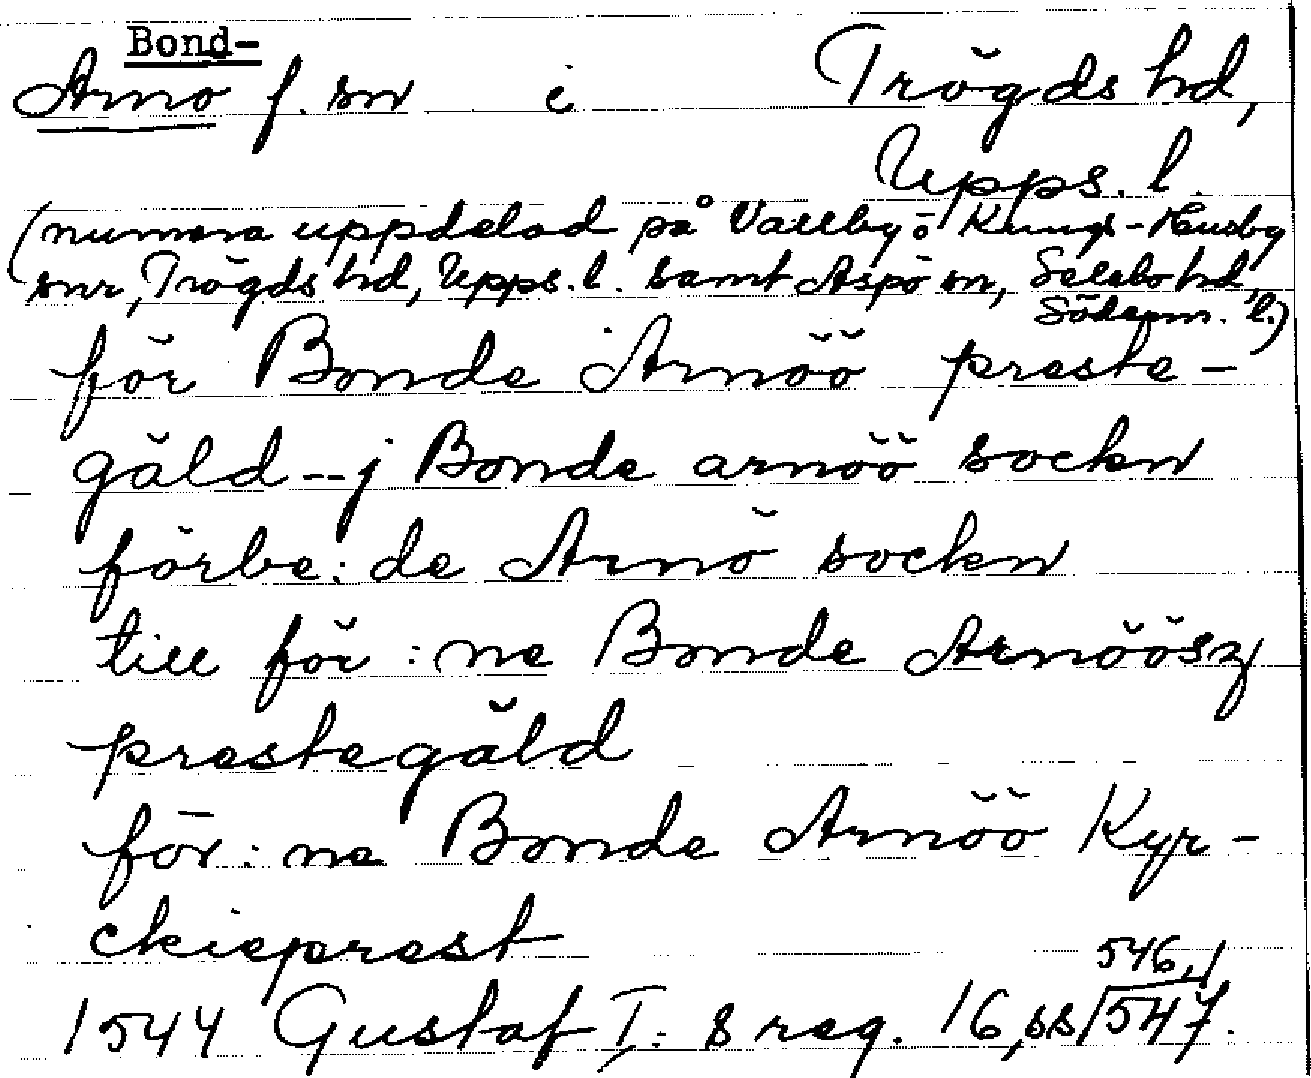 Bond-
Arnö f. sn i Trögds hd,
Upps. l.
(numera uppdelad på Vallby o Kungs-Husby
snr, Trögds hd, Upps. l. samt Aspö sn, Selebo hd,
Söderm. l.)
för Bonde Arnöö preste-
gäld -- j Bonde arnöö sockn
förbe: de Arnö sockn
till för: ne Bonde Arnöösz
prestegäld
för: ne Bonde Arnöö Kyr-
ckieprest
546,1
1544 Gustaf I: s reg. 16, ss/547.